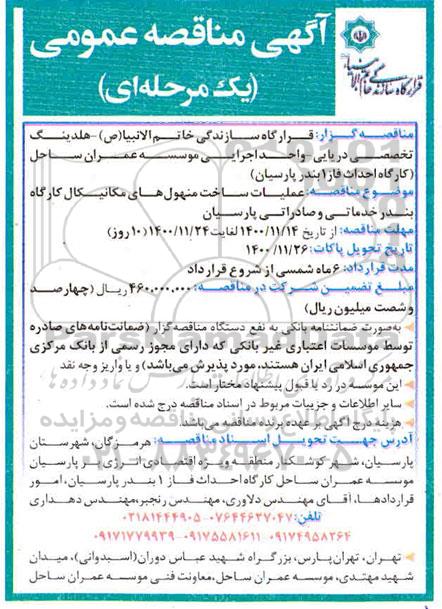 آگهی مناقصه عمومی
(یک مرحله‌ای)
قرارگاه سازندگی خاتم الانبیاء
مناقصه گزار: قرارگاه سازندگی خاتم الانبیا(ص) -هلدینگ
تخصصی دریایی -واحد اجرایی موسسه عمران ساحل
(کارگاه احداث فاز ۱ بندر پارسیان)
موضوع مناقصه: عملیات ساخت منهول‌های مکانیکال کارگاه
بندر خدماتی و صادراتی پارسیان
مهلت مناقصه: از تاریخ ۱۴۰۰/۱۱/۱۴ لغایت ۱۴۰۰/۱۱/۲۴ (۱۰ روز)
تاریخ تحویل پاکات: ۱۴۰۰/۱۱/۲۶
مدت قرارداد: ۶ ماه شمسی از شروع قرارداد
مبلغ تضمین شرکت در مناقصه: ۴۶۰.۰۰۰.۰۰۰ ریال (چهارصد
و شصت میلیون ریال)
به‌صورت ضمانتنامه بانکی به نفع دستگاه مناقصه گزار (ضمانت‌نامه‌های صادره
توسط موسسات اعتباری غیر بانکی که دارای مجوز رسمی از بانک مرکزی
جمهوری اسلامی ایران هستند، مورد پذیرش می‌باشد) و یا واریز وجه نقد
این موسسه در رد یا قبول پیشنهاد مختار است.
سایر اطلاعات و جزییات مربوط در اسناد مناقصه درج شده است.
هزینه درج آگهی بر عهده برنده مناقصه می‌باشد
آدرس جهت تحویل اسناد مناقصه: هرمزگان، شهرستان
پارسیان، شهر کوشکنار منطقه ویژه اقتصادی انرژی بر پارسیان
موسسه عمران ساحل کارگاه احداث فاز ۱ بندر پارسیان، امور
قراردادها، آقای مهندس دلاوری، مهندس رنجبر، مهندس دهداری
تلفن: ۰۷۶۴۴۶۳۷۰۴۷-۰۲۱۸۱۴۴۴۹۰۵
۰۹۱۷۴۹۵۸۲۶۴-۰۹۱۷۵۵۸۱۶۱۱-۰۹۱۷۱۷۷۹۹۳۹
تهران، تهران‌پارس، بزرگراه شهید عباس دوران (استخر)، میدان
شهید مهتدی، موسسه عمران ساحل، معاونت فنی موسسه عمران ساحل